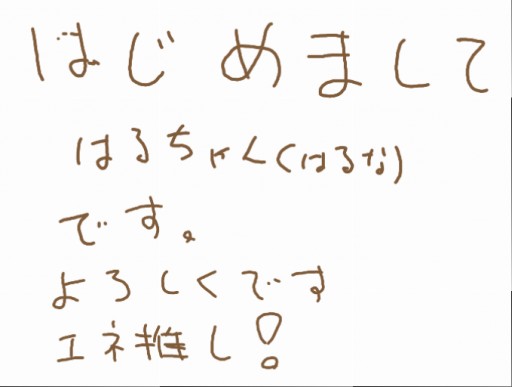 はじめまして
はるちゃん(はるな)
です。
よろしくです
エネ推し!